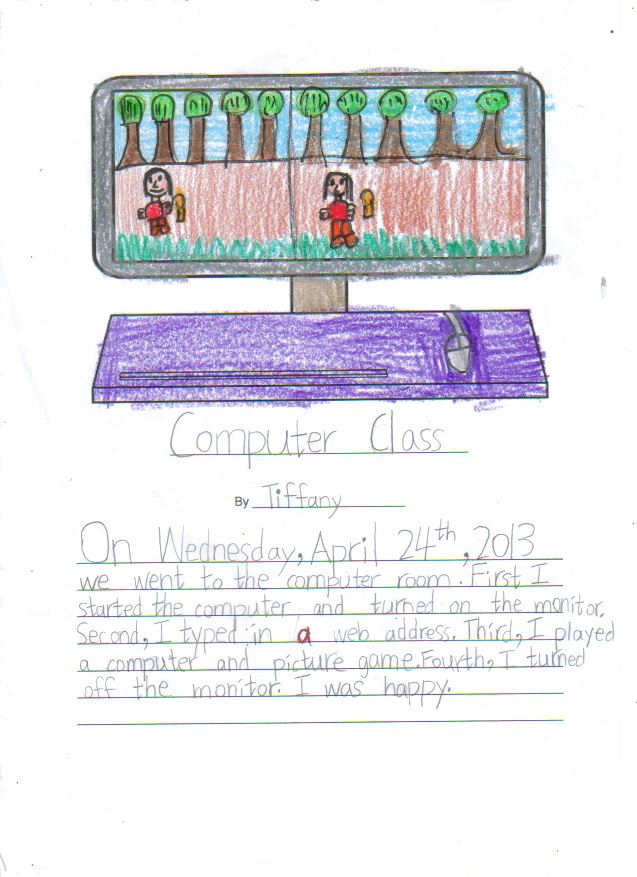 Computer Class
By Tiffany
On Wednesday, April 24th, 2013
we went to the computer room. First I
started the computer and turned on the monitor.
Second, I typed in a web address. Third, I played
a computer and picture game. Fourth, I turned
off the monitor. I was happy.